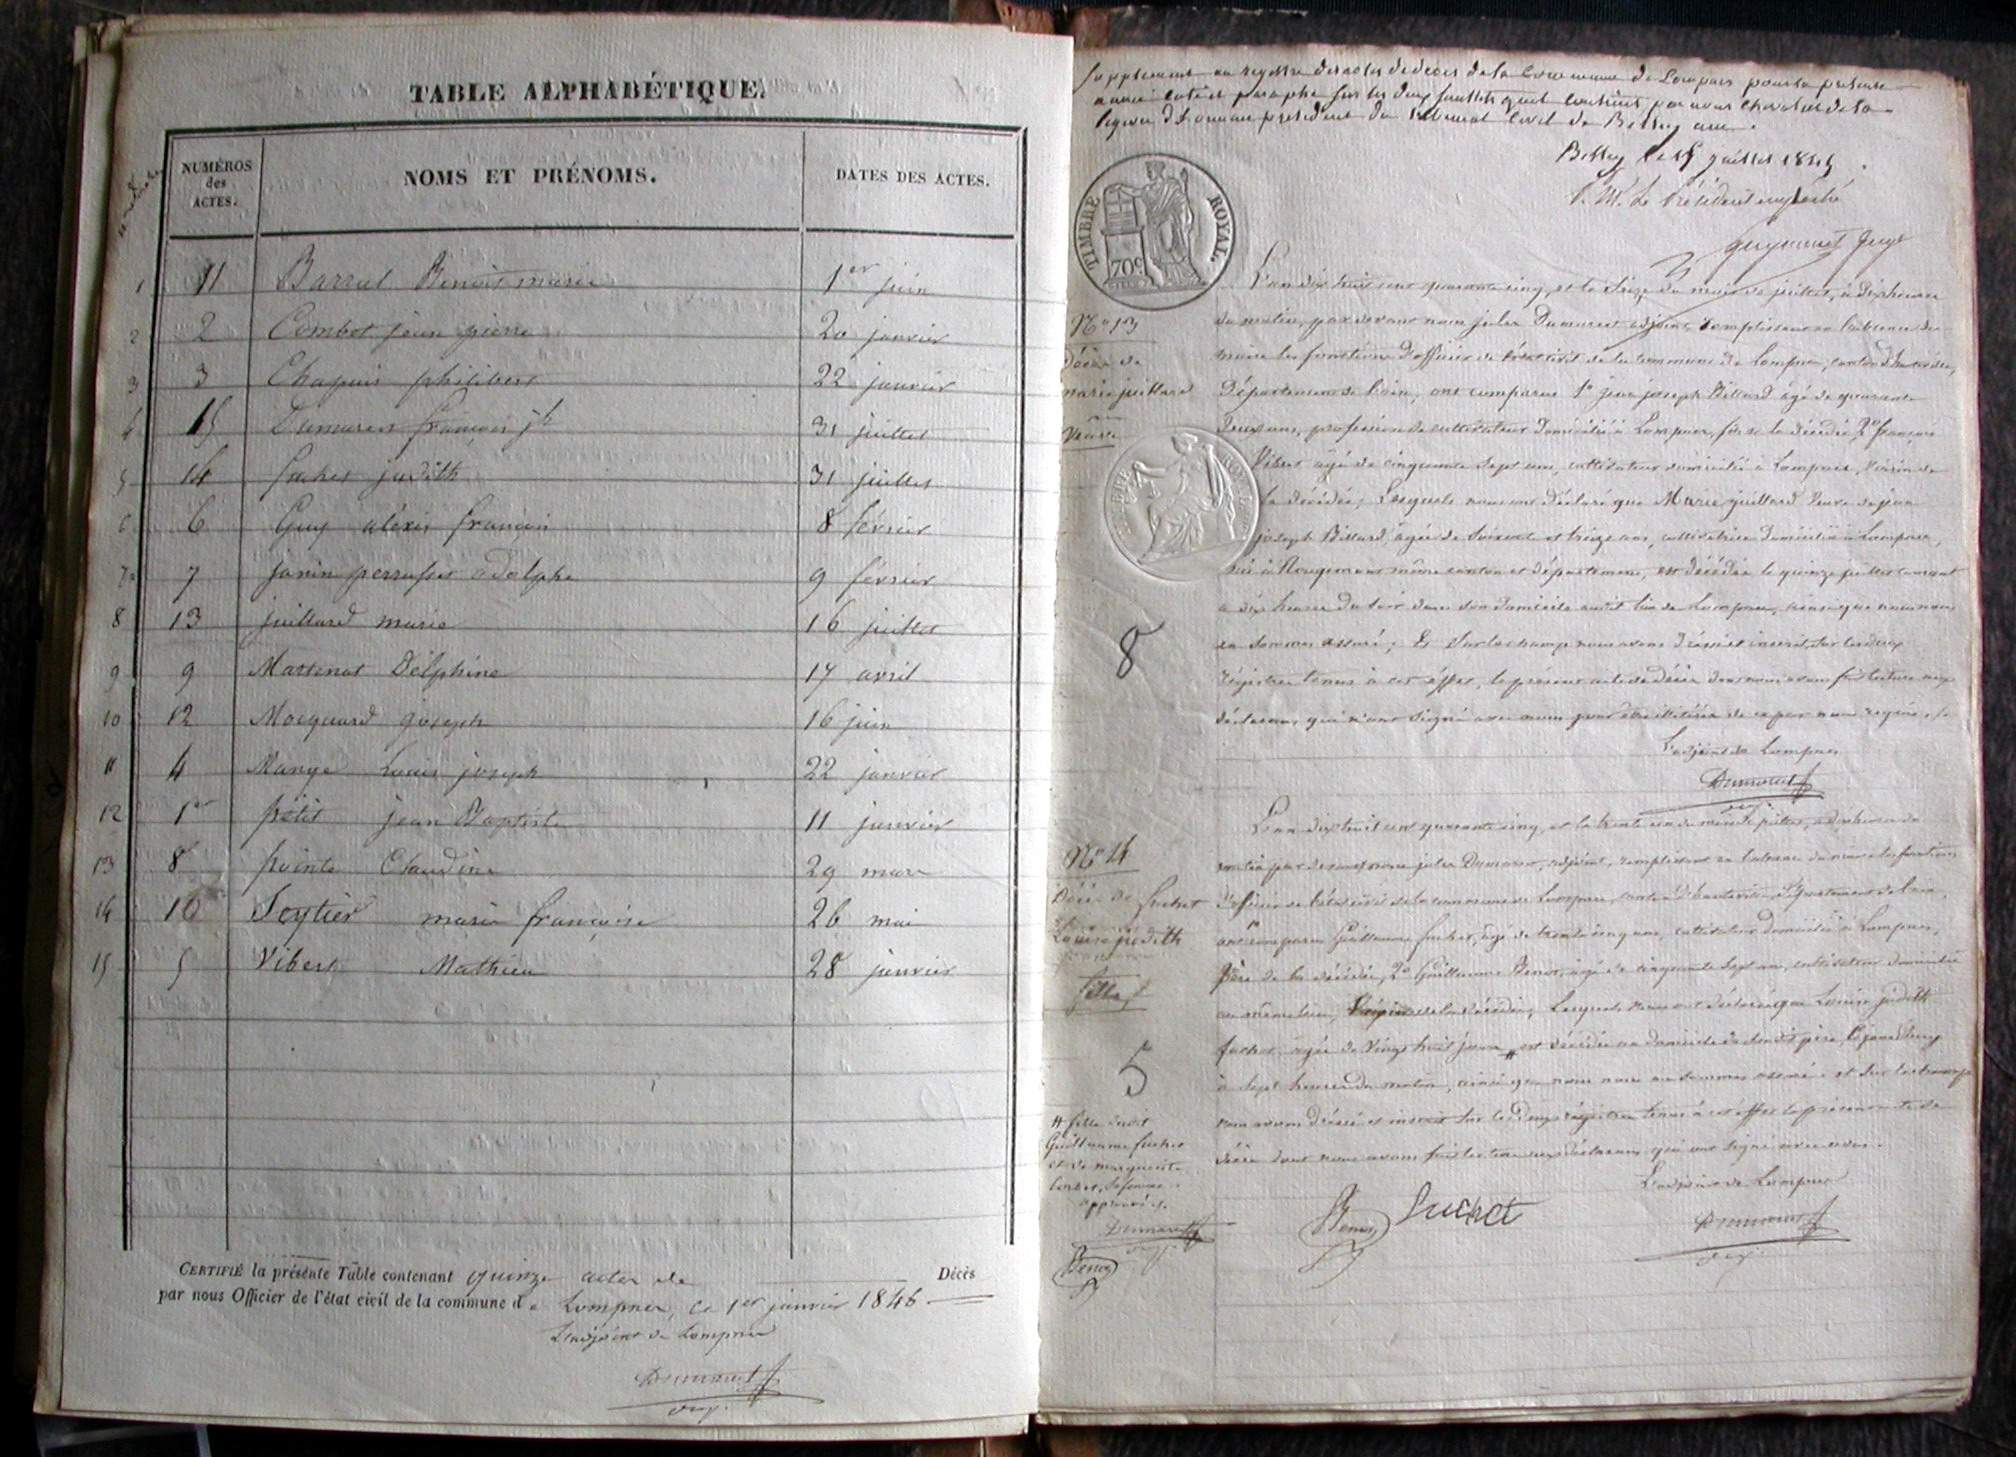 TABLE ALPHABÉTIQUE.
NUMÉROS des ACTES.
NOMS ET PRÉNOMS.
DATES DES ACTES.
1 11 Barrut Benoit marie 1er juin
2 2 Combet jean pierre 20 janvier
3 3 Chapuis philibert 22 janvier
4 15 Dumarest françois jh 31 juillet
5 14 fuchet judith 31 juillet
6 6 Guy aléxis françois 8 février
7 7 janin perrusset adolphe 9 février
8 13 juillard marie 16 juillet
9 9 Martinat Délphine 17 avril
10 12 Mocquard joseph 16 juin
11 4 Mange Louis joseph 22 janvier
12 1er pétit jean Baptiste 11 janvier
13 8 pointe Claudine 29 mars
14 10 Seytier marie françoise 26 mai
15 5 Vibert Mathieu 28 janvier
CERTIFIÉ la présente Table contenant quinze actes de Décès
par nous Officier de l'état civil de la commune de Lompnes, ce 1er janvier 1846
L'adjoint de Lompnes
Dumarest
adj.
Supplément au registre des actes de décès de la Commune de Lompnes pour la présente
année coté et paraphé sur les deux feuillets qu'il contient par nous Chevalier de la
légion d'honneur président du tribunal Civil de Belley ain.
Belley le 15 juillet 1845
P. Mr. Le Président empêché
juge
TIMBRE ROYAL.
70c
L'an dix huit cent quarante cinq, et le seize du mois de juillet, à dix heures
du matin, par devant nous jules Dumarest adjoint remplissant en l'absence du
maire les fonctions d'officier de l'état civil de la commune de Lompnes, canton d'hauteville,
Département de l'ain, ont comparus 1º jean joseph Billard âgé de quarante
deux ans, profession de cultivateur domicilié à Lompnes, fils de la décédée 2º françois
Vibert âgé de cinquante sept ans, cultivateur domicilié à Lompnes, voisin de
la décédée; Lesquels nous ont déclaré que Marie juillard Veuve de jean
joseph Billard, âgée de soixante et treize ans, cultivatrice domiciliée à Lompnes,
née à Rougemont même canton et département, est décédée le quinze juillet courant
à dix heures du soir dans son domicile audit lieu de Lompnes, ainsi que nous nous
en sommes assuré; Et sur le champ nous avons dréssé et inscrit sur les deux
régistres tenus à cet éffet, le présent acte de décès dont nous avons fait lecture aux
déclarans, qui n'ont signé avec nous pour être illétérés de ce par nous requis.
L'adjoint de Lompnes
Dumarest
adj.
Nº 13
Décès de
marie juillard
veuve
8
L'an dix huit cent quarante cinq, et le trente un du mois de juillet, à dix heures du
matin par devant nous jules Dumarest, adjoint, remplissant en l'absence du maire les fonctions
d'officier de l'état civil de la commune de Lompnes, canton d'hauteville, département de l'ain,
ont comparu Guillaume fuchet, âgé de trente cinq ans, cultivateur domicilié à Lompnes,
Père de la décédée, 2º Guillaume Benoz, âgé de cinquante sept ans, cultivateur domicilié
au même lieu, Voisin de la décédée; Lesquels nous ont déclaré que Louise judith
fuchet, âgée de vingt huit jours # est décédée au domicile de son dit père,
à sept heures du matin, ainsi que nous nous en sommes assuré; et sur le champ
nous avons dréssé et inscrit sur les deux régistres tenus à cet éffet le présent acte de
décès dont nous avons fait lecture aux déclarans qui ont signé avec nous.
L'adjoint de Lompnes
Benoz fuchet Dumarest
adj.
Nº 14
Décès de fuchet
Louise judith
fille
5
# fille dudit
Guillaume fuchet
et de marguerite
sa femme
approuvé.
Dumarest
adj.
Benoz